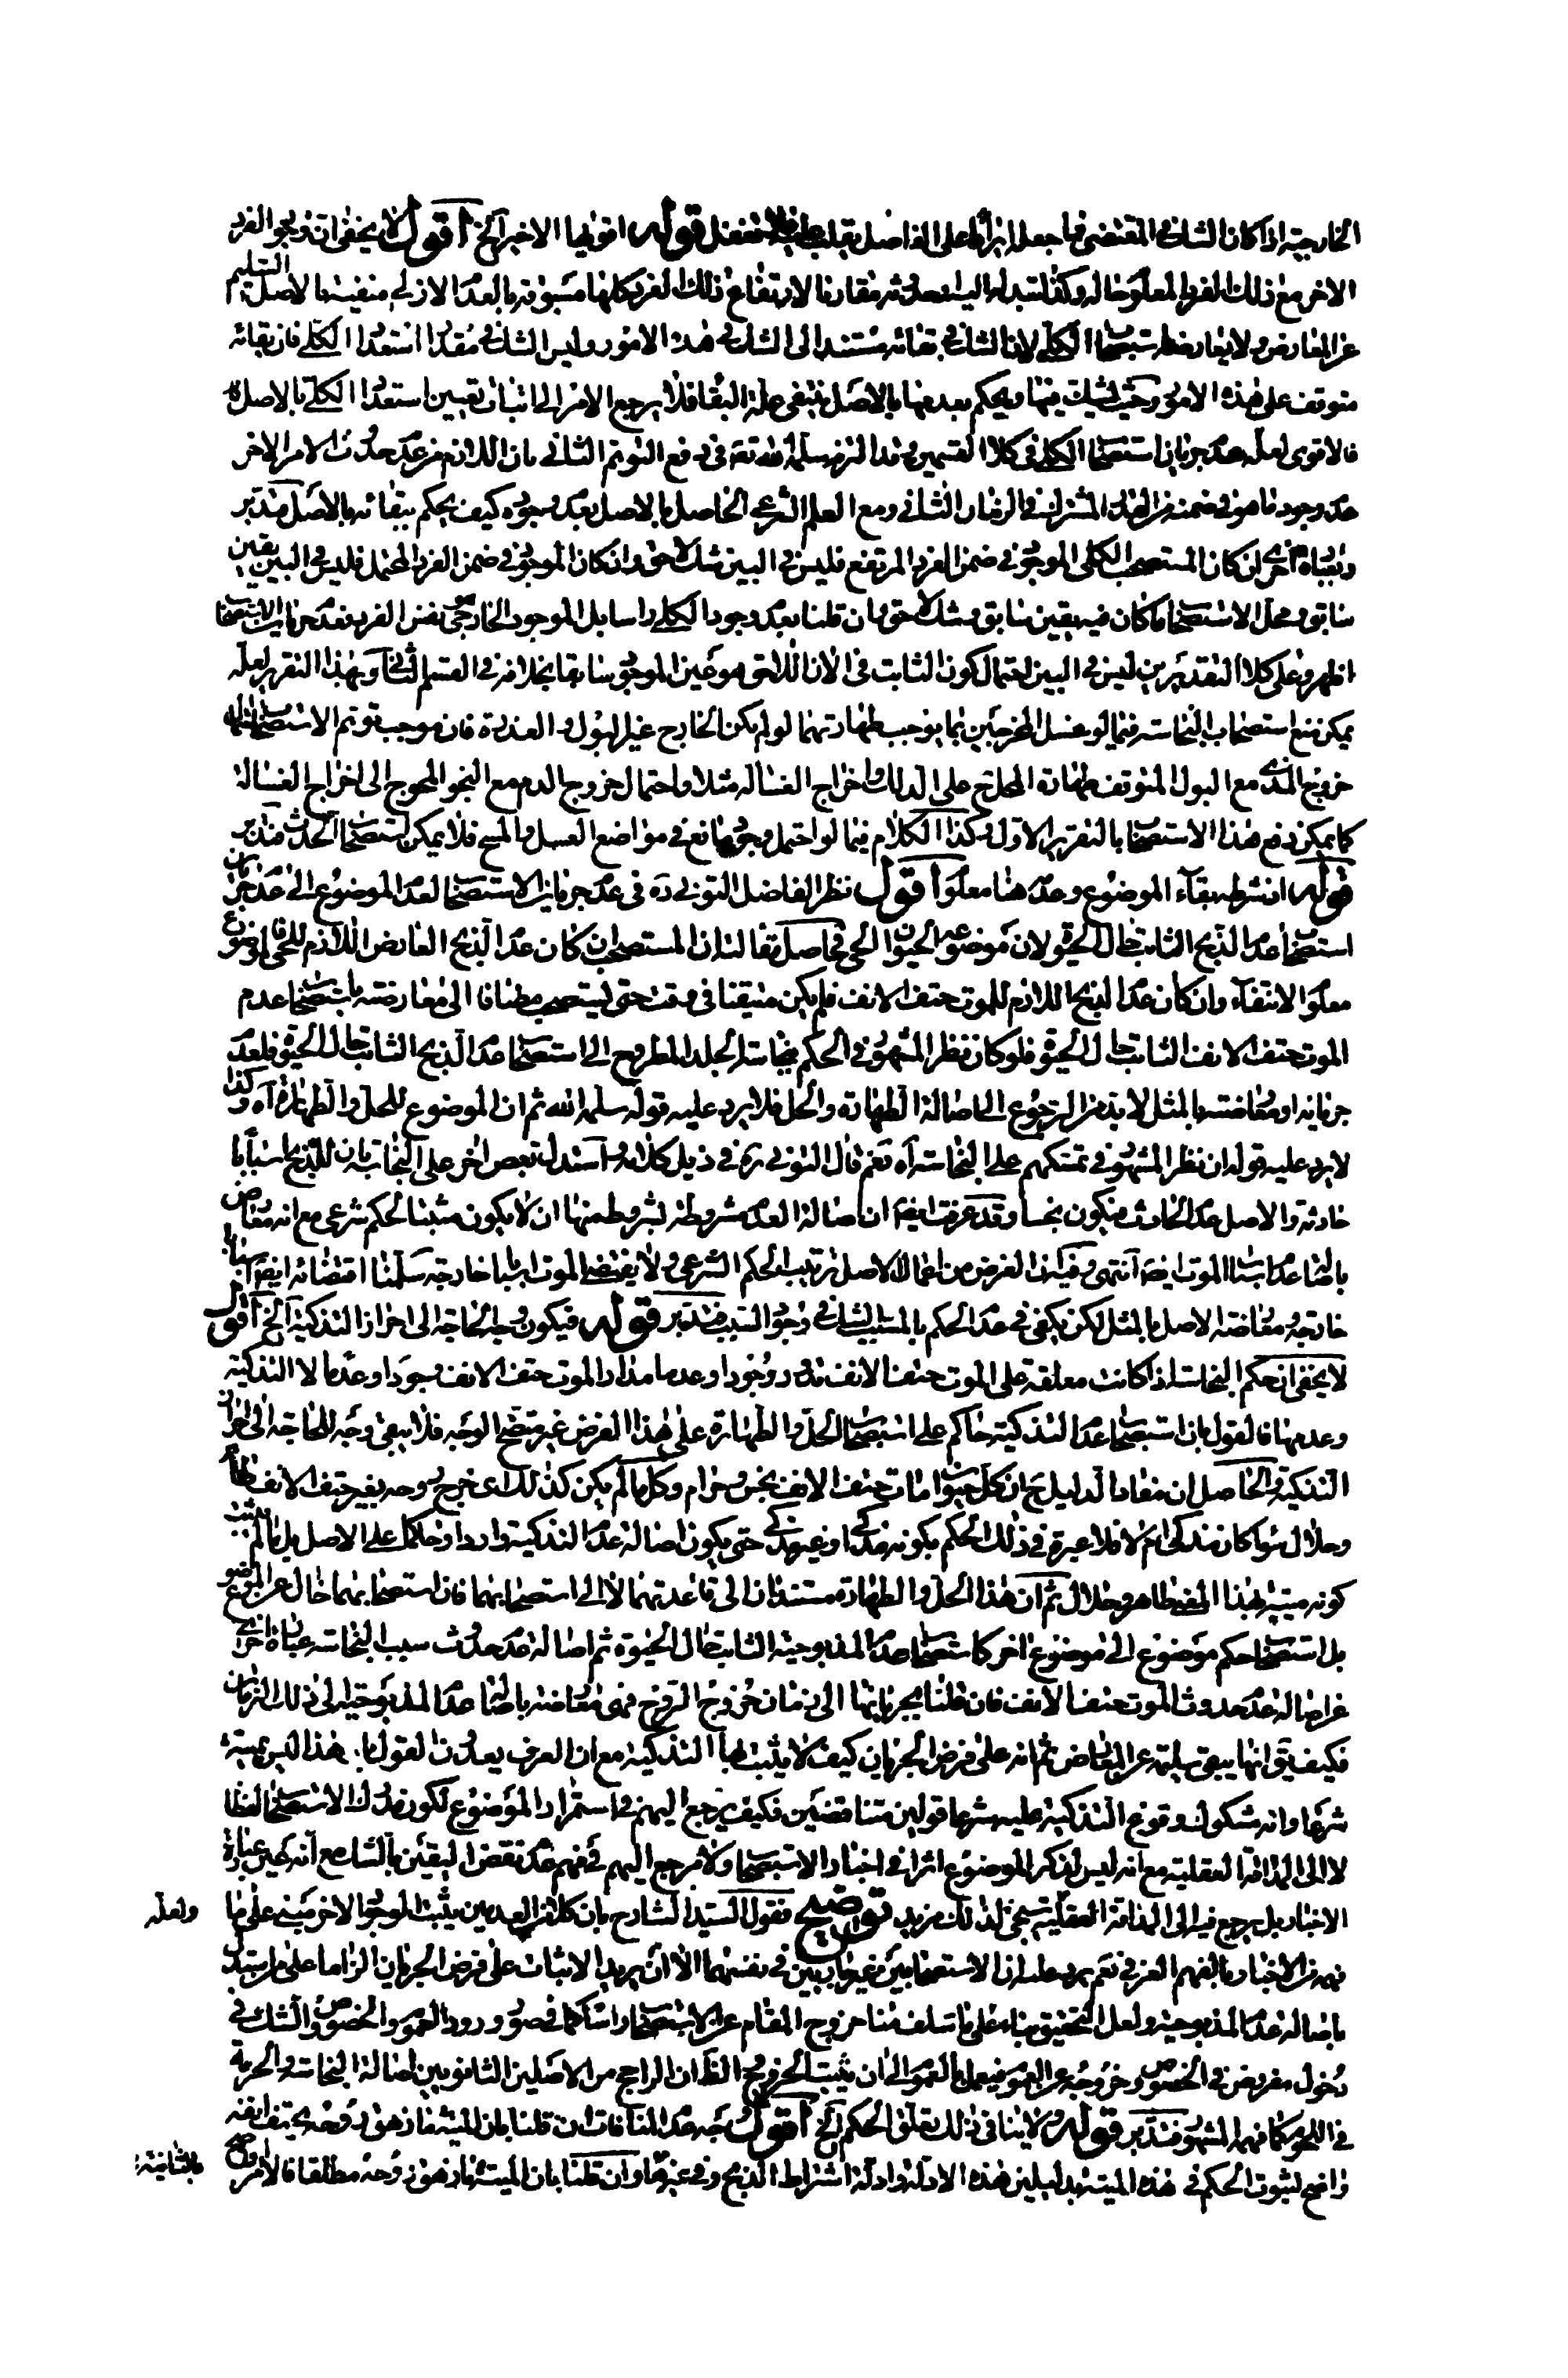 الخارجية اذا كان الشك فى المقتضى فما جعله ايرادا على الفاضل يقلب عليه فلا تغفل قوله اقويها الاخير الخ اقول لا يخفى ان وجود الفرد
الاخر مع ذلك الفرد المعلوم حاله وكذا تبدله اليه وحدوثه مقارنا لارتفاع ذلك الفرد كلها مسبوقة بالعدم الازلى منفية بالاصل السليم
عن المعارض ولا يعارضه استصحاب الكلى لان الشك فى بقائه مستند الى الشك فى هذه الامور وليس الشك فى مقدار استعداد الكلى فان بقائه
متوقف على هذه الامور وحيث يشك فيها ويحكم بعدمها بالاصل ينتفى علة البقاء فلا يرجع الامر الى اثبات تعيين استعداد الكلى بالاصل
فالاقوى لعله عدم جريان استصحاب الكلى فى كلا القسمين وقد التزم سلمه الله تعه فى دفع التوهم الثانى بان اللازم من عدم حدوث الامر الاخر
عدم وجود ما هو فى ضمنه من القدر المشترك فى الزمان الثانى ومع العلم الشرعى الحاصل بالاصل بعدم وجوده كيف يحكم ببقائه بالاصل فتدبر
وبعبارة اخرى ان كان المستصحب الكلى الموجود فى ضمن الفرد المرتفع فليس فى البين شك لاحق وان كان الموجود فى ضمن الفرد المحتمل فليس فى البين يقين
سابق ومحل الاستصحاب ما كان فيه يقين سابق وشك لاحق وان قلنا بعدم وجود الكلى راسا بل الموجود الخارجى هو نفس الفرد فعدم جريان الاستصحاب
اظهر وعلى كلا التقديرين ليس فى البين احتمال كون الثابت فى الان اللاحق هو عين الموجود سابقا بخلافه فى القسم الثانى وبهذا التقرير لعله
يمكن منع استصحاب النجاسة فيما لو غسل المخرجين بما يوجب طهارتهما لو لم يكن الخارج غير البول و العذرة فان موجب توهم الاستصحاب احتمال
خروج المذى مع البول المتوقف طهارة المحل ح على الدلك واخراج الغسالة مثلا واحتمال خروج الدم مع النجو المحوج الى اخراج الغسالة
كما يمكن دفع هذا الاستصحاب بالتقرير الاول وكذا الكلام فيما لو احتمل وجود مانع فى مواضع الغسل والمسح فلا يمكن استصحاب الحدث فتدبر
قوله ان شرطه بقاء الموضوع وعدمه هنا معلوم اقول نظر الفاضل التونى ره فى عدم جريان الاستصحاب لعدم الموضوع الى عدم جريان
استصحاب عدم الذبح الثابت حال الحيوة لان موضوعه الحيوان الحى فحاصل مقالته ان المستصحب ان كان عدم الذبح العارض اللازم للحى فموضوعه
معلوم الانتفاء وان كان عدم الذبح اللازم للموت حتف الانف فلم يكن متيقنا فى وقت حتى يستصحب مضافا الى معارضته باستصحاب عدم
الموت حتف الانف الثابت حال الحيوة فلو كان نظر المشهور فى الحكم بنجاسة الجلد المطروح الى استصحاب عدم الذبح الثابت حال الحيوة فلعدم
جريانه او معارضته بالمثل لا بد من الرجوع الى اصالة الطهارة والحل فلا يرد عليه قوله سلمه الله ثم ان الموضوع للحل والطهارة اه وكذا
لا يرد عليه قوله ان نظر المشهور فى تمسكهم على النجاسة اه نعم قال التونى ره فى ذيل كلامه واستدل بعض اخر على النجاسة بان للذبح اسبابا
حادثة والاصل عدم الحادث فيكون نجسا وقد عرفت ايضا ان اصالة العدم مشروطة بشروط منها ان لا يكون مثبتا لحكم شرعى مع انه معارض
باصالة عدم اسباب الموت ايضا انتهى وفيه ان الغرض من اعمال الاصل ترتيب الحكم الشرعى ولا يقتضى الموت اسبابا خارجة سلمنا اقتضائه ايضا اسبابا
خارجة ومعارضة الاصل بالمثل لكن يكفى فى عدم الحكم بالمسبب الشك فى وجود السبب فتدبر قوله فيكون وجه الحاجة الى احراز التذكية الخ اقول
لا يخفى ان حكم النجاسة اذا كانت معلقة على الموت حتف الانف تدور وجودا وعدما مدار الموت حتف الانف وجودا وعدما لا التذكية
وعدمها فالقول بان استصحاب عدم التذكية حاكم على استصحاب الحل والطهارة على هذا الفرض غير متضح الوجه فلا يبقى وجه للحاجة الى احراز
التذكية والحاصل ان مفاد الدليل ح ان كل حيوان مات حتف الانف نجس وحرام وكل ما لم يكن كذلك اى خرج روحه بغير حتف الانف طاهر
وحلال سواء كان مذكى ام لا فلا عبرة فى ذلك الحكم بكونه مذكى او غير مذكى حتى يكون اصالة عدم التذكية واردا وحاكما على الاصل بل ما لم يثبت
كونه ميتة بهذا المعنى طاهر وحلال ثم ان هذا الحل والطهارة مستندان الى قاعدتهما لا الى استصحابهما فان استصحابهما حال من الموضوع
بل استصحاب حكم موضوع الى موضوع اخر كاستصحاب عدم المذبوحية الثابت حال الحيوة ثم اصالة عدم حدوث سبب النجاسة عبارة اخرى
عن اصالة عدم حدوث الموت حتف الانف فان قلنا بجريانها الى زمان خروج الروح فهى معارضة باصالة عدم المذبوحية الى ذلك الزمان
فكيف يق انها يبقى سليمة عن المعارض ثم انه على فرض الجريان كيف لا يثبت بها التذكية مع ان العرف يعدون القول بان هذا ليس بميتة
شرعا وانه مشكوك وقوع التذكية عليه شرعا قولين متناقضين فكيف يرجع اليهم فى استمرار الموضوع لكون مدرك الاستصحاب لفظا
لا الى المداقة العقلية مع انه ليس لذكر الموضوع اثرا فى اخبار الاستصحاب ولا يرجع اليهم فى فهم عدم نقض اليقين بالشك مع انه عين عبارة
الاخبار بل يرجع فيه الى المداقة العقلية سيجئ لذلك مزيد توضيح فقول السيد الشارح بان كلا من العدمين يثبت الوجود الاخر مبنى على ما ولعله
فهمه من الاخبار بالفهم العرفى نعم يرد عليه ان الاستصحابين غير جاريين فى نفسهما الا ان يريد الاثبات على فرض الجريان الزاما على من استدل
باصالة عدم المذبوحية ولعل التحقيق بناء على ما سلف منا خروج المقام عن الاستصحاب راسا كما فى صورة ورود العموم والخصوص والشك فى
دخول مفروض فى الخصوص وخروجه عن العموم فيعمل بالعموم الى ان يثبت الخروج الظ ان الراجح من الاصلين الثانويين اصالة النجاسة والحرمة
فى اللحوم كما فهمه المشهور فتدبر قوله ولا ينافى ذلك تعلق الحكم الخ اقول وجه عدم المنافات ان قلنا بان الميتة ما زهق روحه بحتف انفه
واضح لثبوت الحكم فى هذه الميتة بدليلين هذه الادلة وادلة اشتراط الذبح وفى غيرها وان قلنا بان الميتة ما زهق روحه مطلقا فالامر اوضح بالثانية